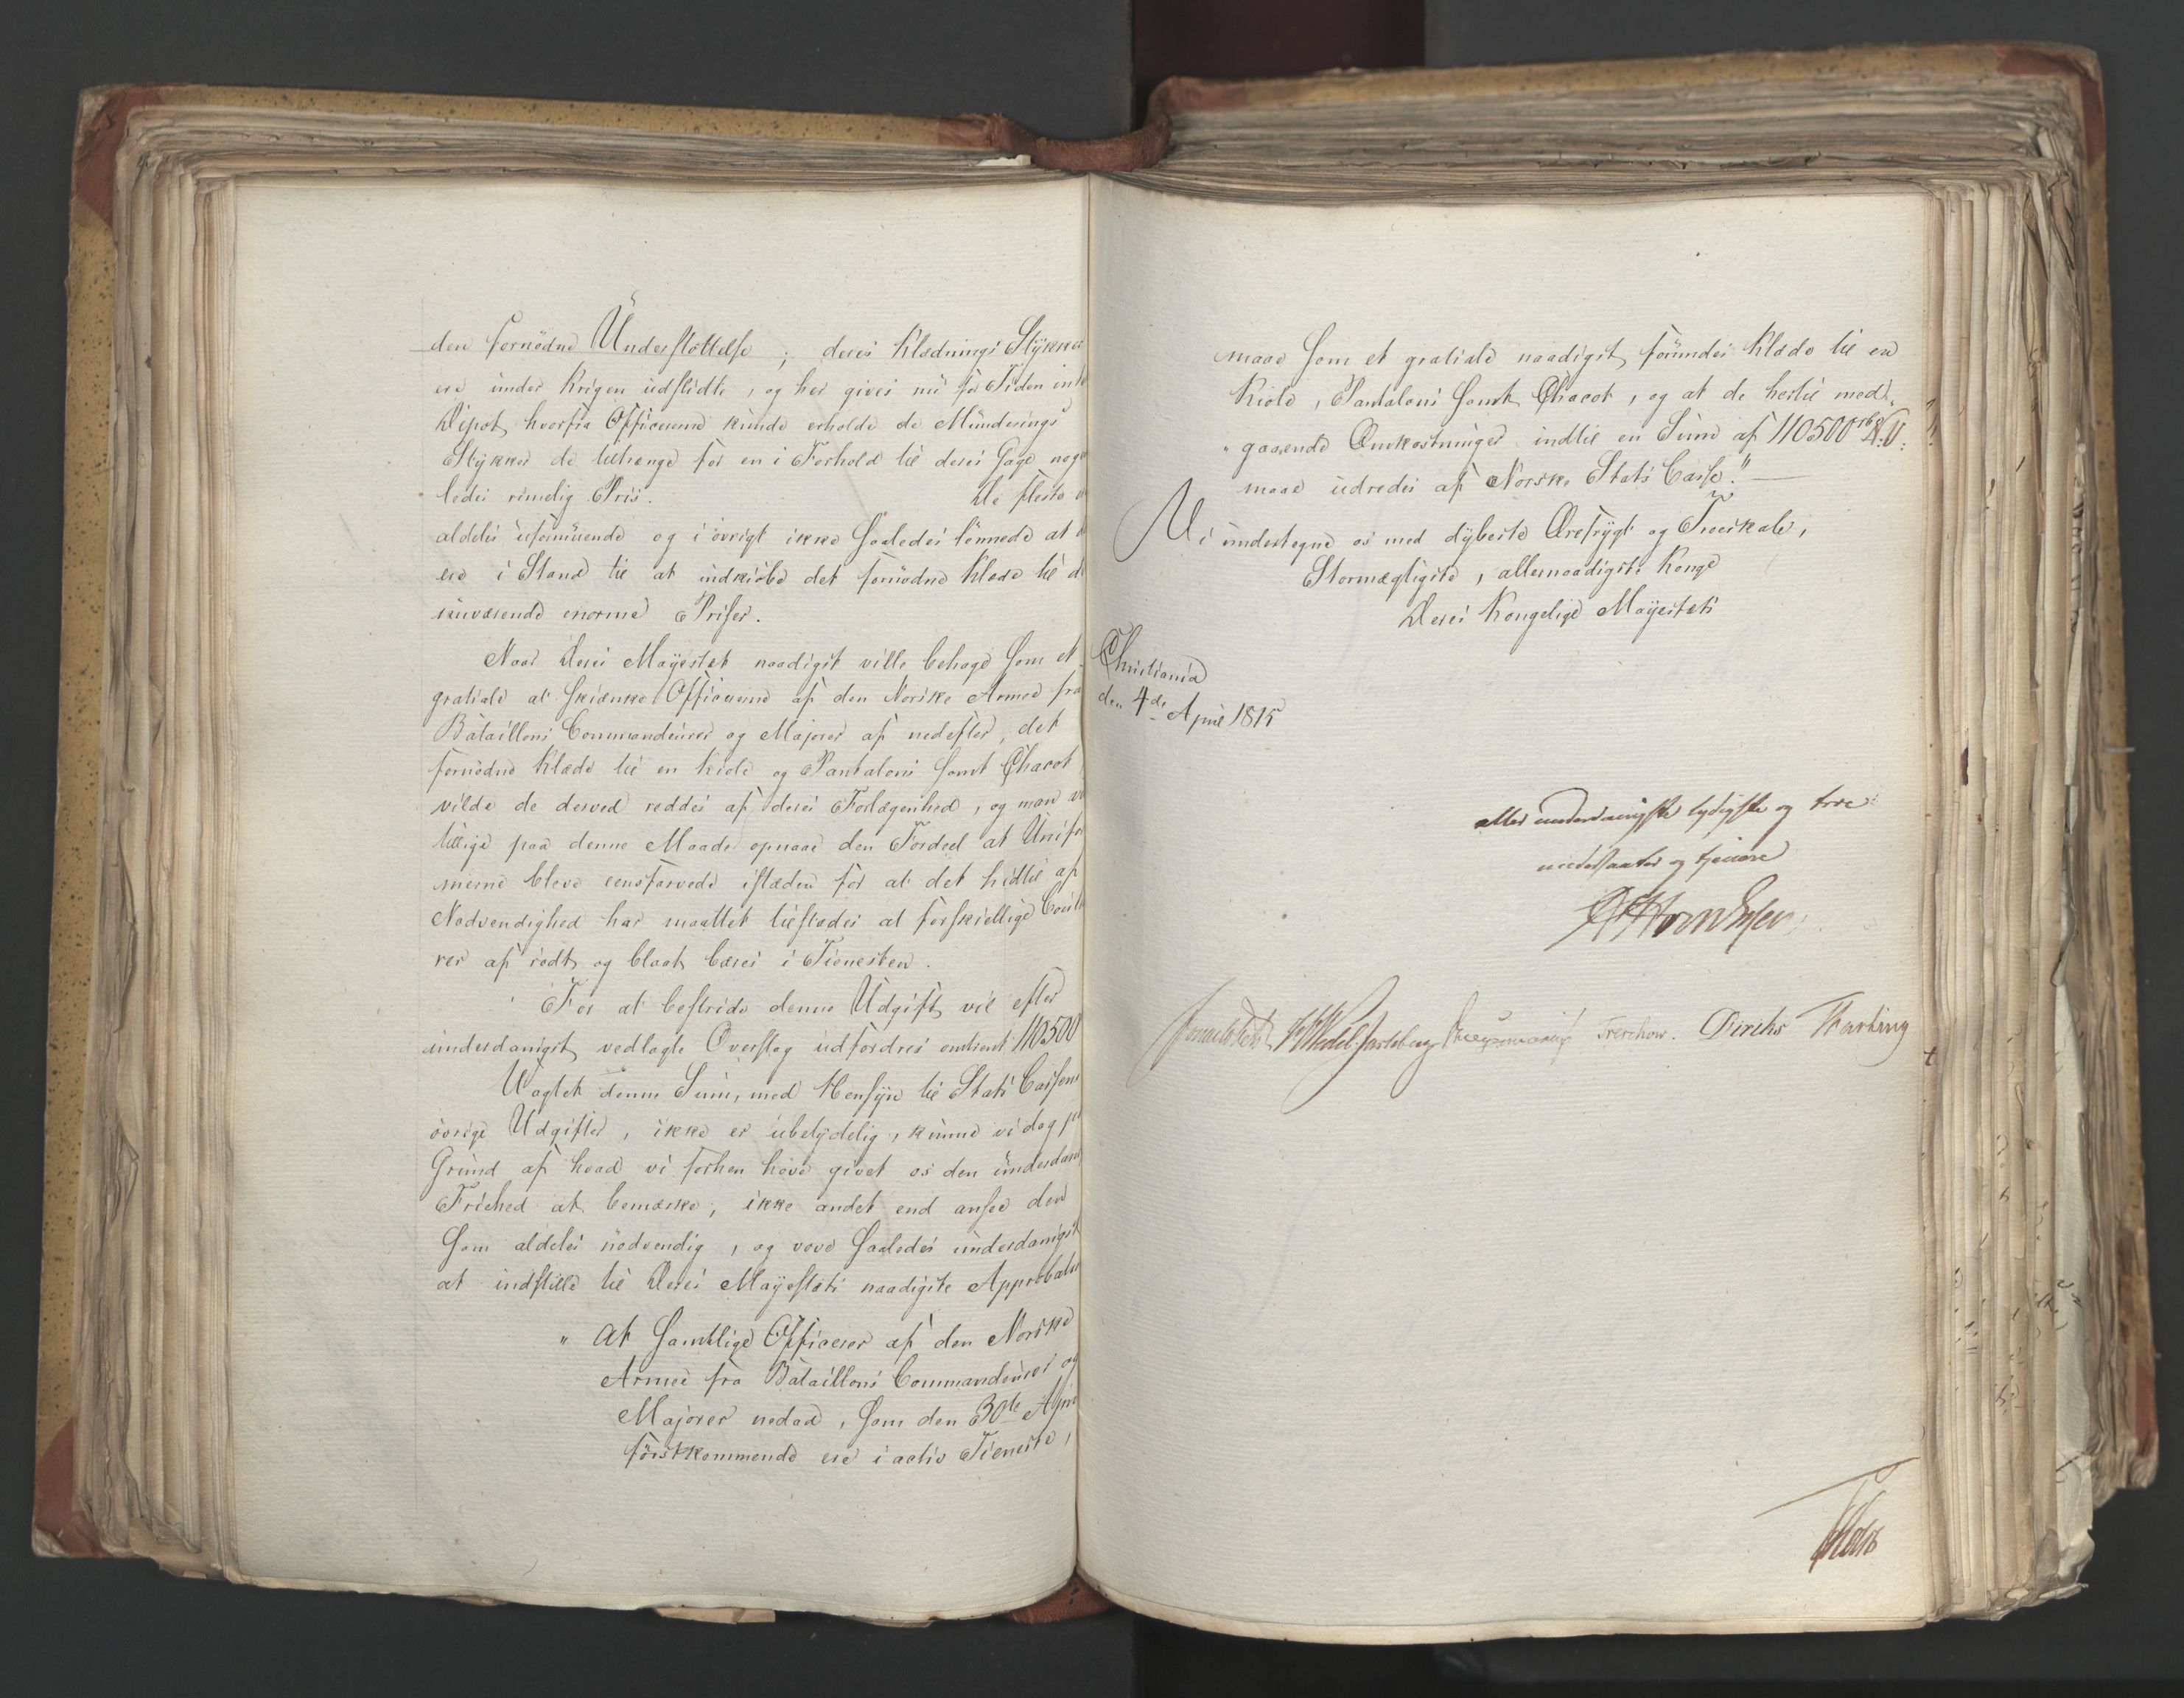 den fornødne Understøttelse; deres Klædnings Stykker
ere under Krigen udslidte, og her gives nu for Tiden intet
Depot hvorfra Officererne kunde erholde de Munderings
Stykker de tiltrænge for en i Forhold til deres Gage noge
ledes rimelig Priis. De fleste
aldeles uformuende og i øvrigt ikke saaledes lønnede at
ere i Stand til at indkiøbe det fornødne Klæde til de
nuværende enorme Priser.
Naar Deres Mayestæt naadigst ville behage som et
gratiale at skiænke Officererne af den Norske Armee fra
Bataillons Commandeurer og Majorer af nedefter, det
fornødne Klæde til en Kiole og Pantalons samt Chacot
vilde de derved reddes af deres Forlægenhed, og man
tillige paa denne Maade opnaae den Fordeel at Unifor
merne bleve eensfarvede istæden for at det hidtil af
Nødvendighed har maattet tilstædes at forskiellige Couleu
rer af rødt og blaat bæres i Tienesten.
For at bestride denne Udgift vil efter
underdanigst vedlagte Overslag udfordres omtrent 110500
Uagtet denne Sum, med Hensyn til Stats Cassens
øvrige Udgifter, ikke er ubetydelig, kunne vi dog paa
Grund af hvad vi forhen have givet os den underdan
Friehed at bemærke, ikke andet end ansee den
som aldeles nødvendig, og vove saaledes underdanigst
at indstille til Deres Mayestæts naadigste Approbation
" At samtlige Officerer af den Norske
Armee fra Bataillons Commandeurer og
Majorer nedad, som den 30te April
førstkommende ere i activ Tieneste,
maae som et gratiale naadigst forundes Klæde til en
Kiole, Pantalons samt Chacot, og at de hertil med-
" gaaende Omkostninger indtil en Sum af 110500 rbd N.V.
maae udredes af Norske Stats Casse." —
Vi undertegne os med dybeste Ærefrygt og Troeskab,
Stormægtigste, allernaadigste Konge
Deres Kongelige Mayestæts
Christiania
den 4de April 1815
allerunderdanigste lydigste og troe
undersaatter og tjenere
Sommerhielm HWedel Jarlsberg Treschow. Diriks Hartvig